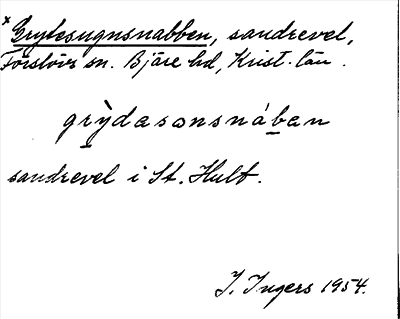 × Grytesugnsnabben, sandrevel,
Förslövs sn. Bjäre hd, Krist. län.
grỳdasɔnsnában
sandrevel i St. Hult.
I. Ingers 1954.